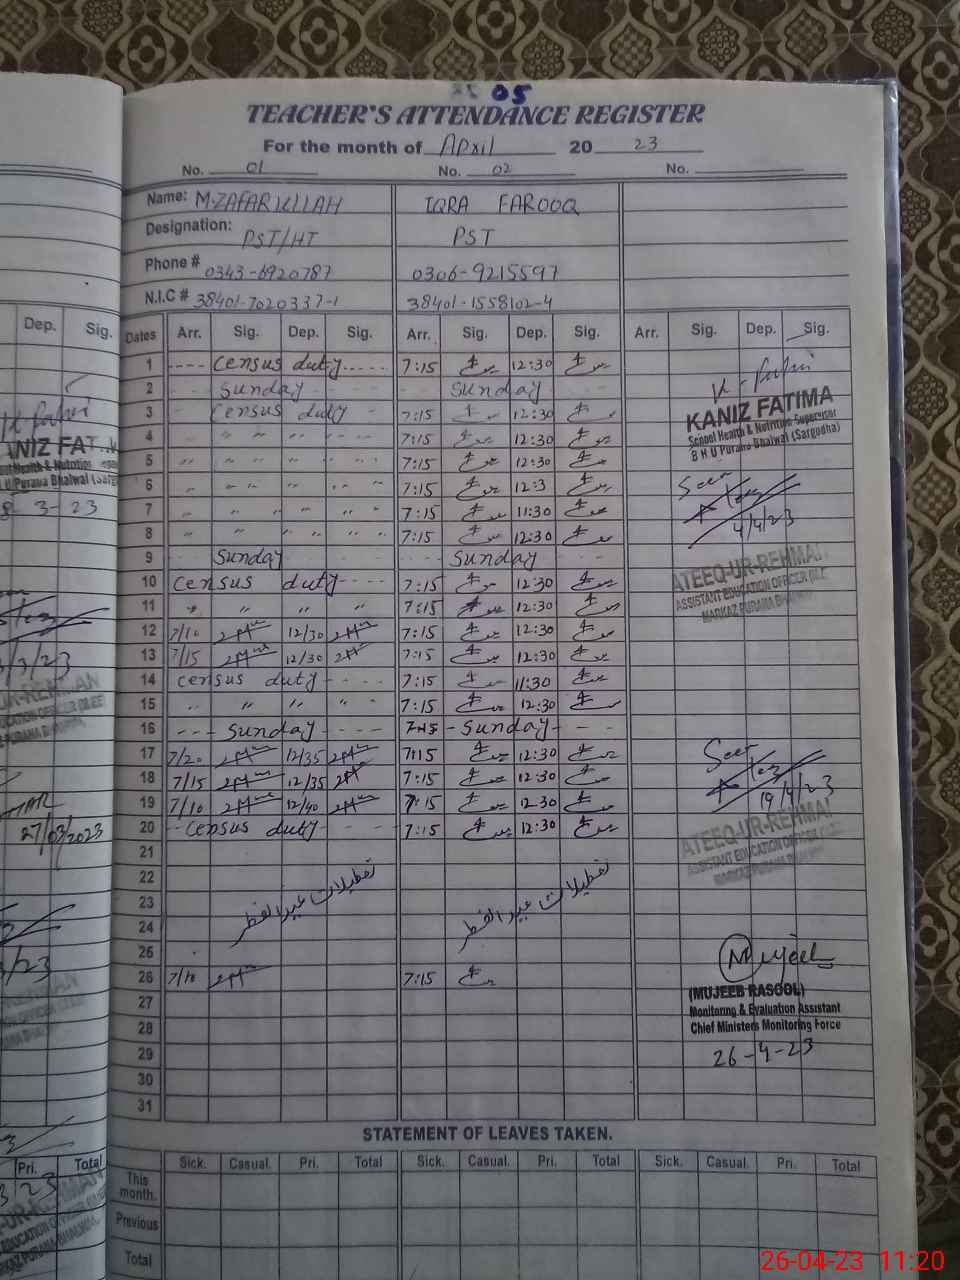 05
TEACHER'S ATTENDANCE REGISTER
For the month of April 20 23
No. 01 No. 02 No.
Name: M.ZAFARULLAH IQRA FAROOQ
Designation: PST/HT PST
Phone # 0343-6920787 0306-9215597
N.I.C # 38401-7020337-1 38401-1558102-4
Dates Arr. Sig. Dep. Sig. Arr. Sig. Dep. Sig. Arr. Sig. Dep. Sig.
1 ---- Census duty ----- 7:15 12:30
2 Sunday Sunday
3 Census duty 7:15 12:30
4 " " " " 7:15 12:30
5 " " " " 7:15 12:30
6 " " " " 7:15 12:3
7 " " " " 7:15 11:30
8 " " " " 7:15 12:30
9 Sunday Sunday
10 Census duty ---- 7:15 12:30
11 " " " " 7:15 12:30
12 7/10 12/30 7:15 12:30
13 7/15 12/30 7:15 12:30
14 Census duty ---- 7:15 11:30
15 " " " " 7:15 12:30
16 --- Sunday --- 7:15 - Sunday - - -
17 7/20 12/35 7:15 12:30
18 7/15 12/35 7:15 12:30
19 7/10 12/40 7:15 12:30
20 -- Census duty - - - 7:15 12:30
21
22
23 تعطیلات عید الفطر تعطیلات عید الفطر
24
25
26 7/10 7:15
27
28
29
30
31
KANIZ FATIMA
School Health & Nutrition Supervisor
B H U Purana Bhalwal (Sargodha)
Seen
4/4/23
ATEEQ-UR-REHMAN
ASSISTANT EDUCATION OFFICER
MARKAZ PURANA BHALWAL
Seen
19/4/23
ATEEQ-UR-REHMAN
ASSISTANT EDUCATION OFFICER
MARKAZ PURANA BHALWAL
Mujeeb
(MUJEEB RASOOL)
Monitoring & Evaluation Assistant
Chief Ministers Monitoring Force
26-4-23
STATEMENT OF LEAVES TAKEN.
Sick. Casual. Pri. Total Sick. Casual. Pri. Total Sick. Casual. Pri. Total
This month.
Previous
Total
Dep. Sig.
3-23
27/03/2023
Pri. Total
26-04-23 11:20